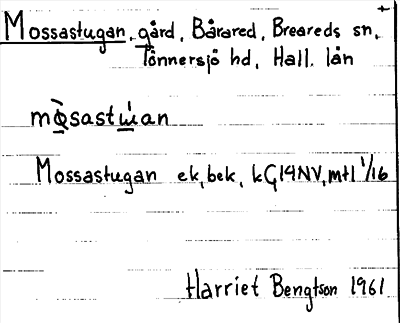 Mossastugan, gård, Bårared, Breareds sn,
Tönnersjö hd, Hall. län
Mossastugan ek, bek, kG14NV, mtl 1/16
Harriet Bengtson 1961